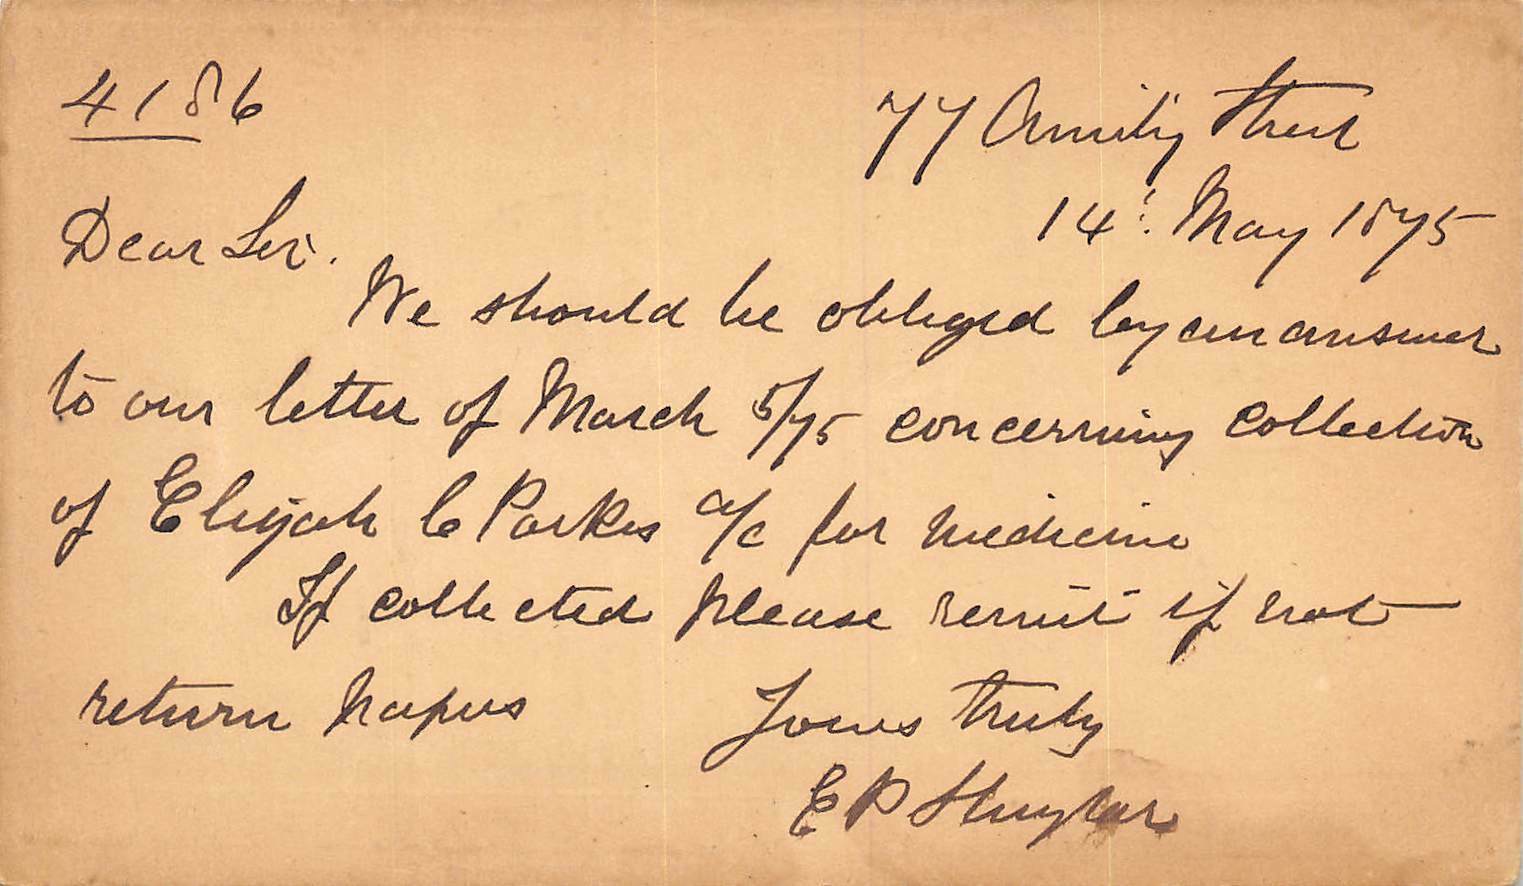 4186
77 Amity Street
14. May 1875
Dear Sir.
We should be obliged by an answer
to our letter of March 5/75 concerning collection
of Elijah C Parkes a/c for medicine
If collected please remit if not
return papers
Yours truly
E P